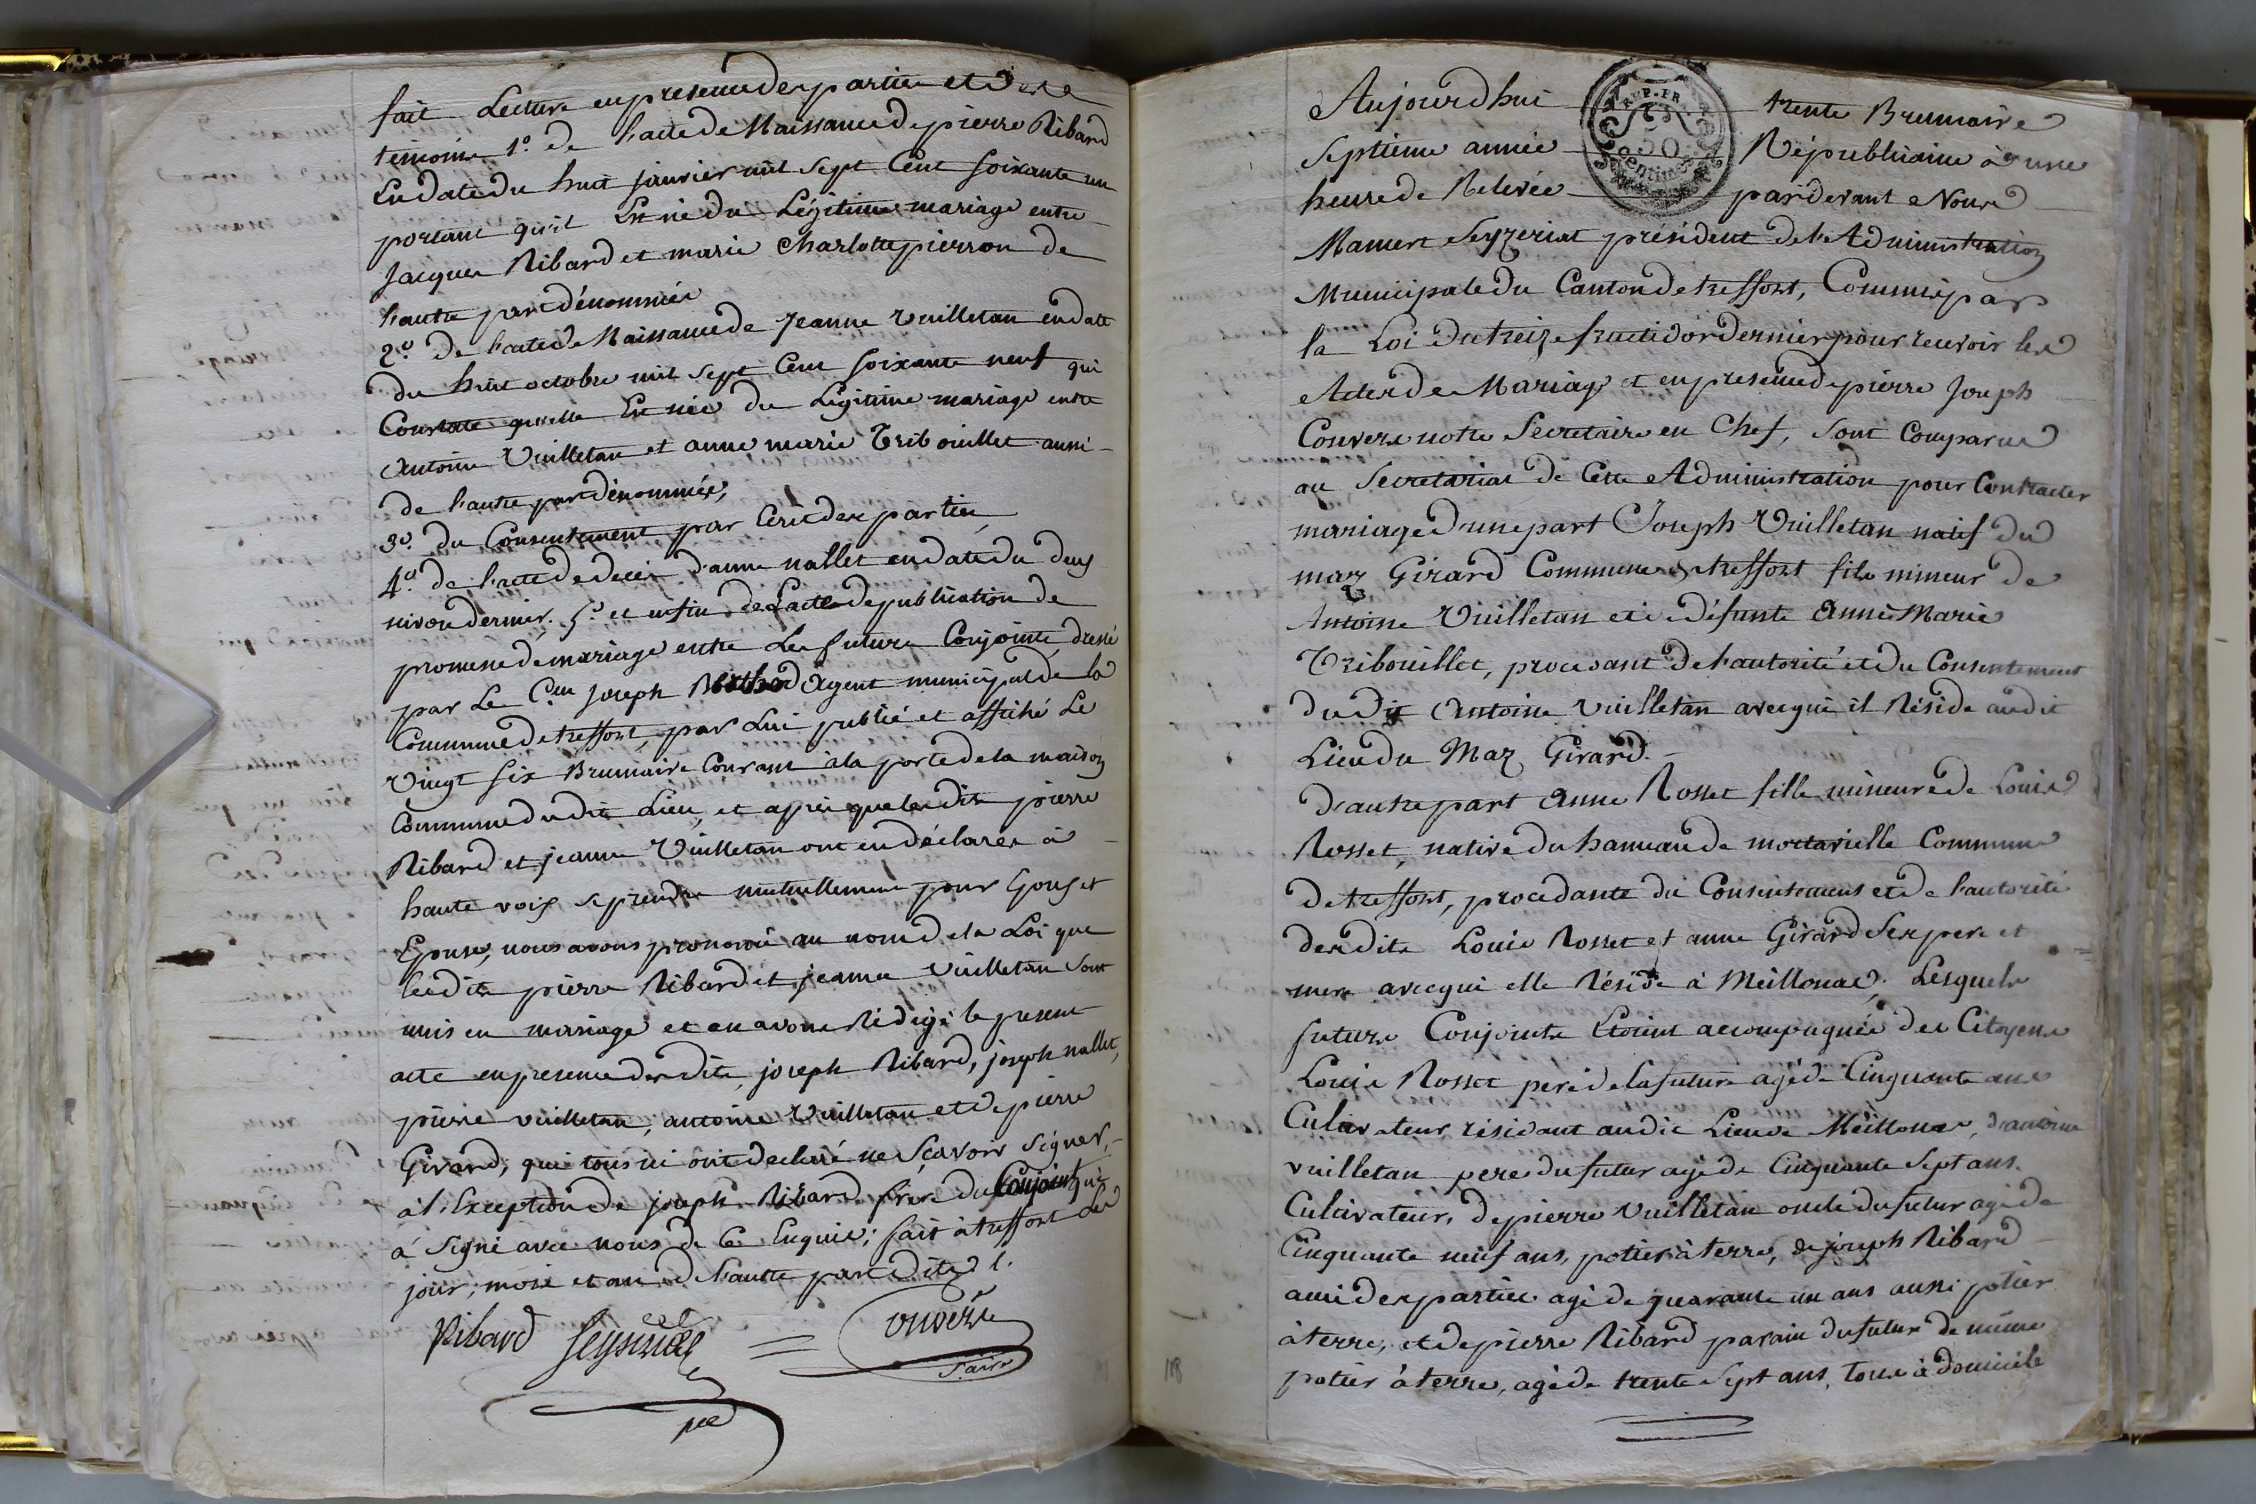 fait Lecture en presence des parties et des
témoins 1º. de l'acte de Naissance de pierre Ribard
En date du huit janvier mil sept Cent soixante un
portant qu'il Est né du Légitime mariage entre
Jacques Ribard et marie Charlotte pierron de
l'autre part dénommés
2º. de l'acte de Naissance de Jeanne Vuilletan en date
du huit octobre mil sept Cent soixante neuf qui
Constate qu'elle Est née du Légitime mariage entre
Antoine Vuilletan et anne marie Tribouillet aussi
de l'autre part dénommés,
3º. du Consentement par Ecrit des parties
4º. de l'acte de decès d'anne nallet en date du deux
nivose dernier. 5º. et enfin de L'acte de publication de
promesse de mariage entre Les futurs Conjoints, dressé
par Le Cen joseph Agent municipal de la
Commune de treffort, par Lui publié et affiché Le
Vingt six Brumaire Courant à la porte de la maison
Commune du dit Lieu, et après que lesdits pierre
Ribard et jeanne Vuilletan ont eu déclarés à
haute voix se prendre mutuellement pour Epoux et
Epouse, nous avons prononcé au nom de la Loi que
lesdits pierre Ribard et jeanne Vuilletan sont
unis en mariage et en avons Rédigé le present
acte en presence des dits joseph Ribard, joseph nallet,
pierre vuilletan, antoine Vuilletan et de pierre
Girard, qui tous ni ont declaré ne Sçavoir Signer,
à l'Exception de joseph Ribard frère du Conjoint qui
à Signé avec nous de Ce Enquis; fait à treffort Les
jour, mois et an de l'autre part dits
Ribard Seyzeriat Convers
pdt S.aire
Aujourdhui trente Brumaire
septieme année Républicaine à une
heure de Relevée pardevant Nous
REP. FRA.
50
Centimes
Mamert Seyzeriat président de l'Administration
Municipale du Canton de treffort, Commis par
la Loi du treize fructidor dernier pour recevoir les
Actes de Mariage et en presence de pierre Joseph
Convers notre Secretaire en Chef, sont Comparus
au Secretariat de Cette Administration pour Contracter
mariage d'une part Joseph Vuilletan natif du
maz Girard Commune de treffort fils mineur de
Antoine Vuilletan et de défunte Anne Marie
Tribouillet, procedant de l'autorité et du Consentement
du dit Antoine Vuilletan avec qui il Réside audit
Lieu du Maz Girard.
d'autre part Anne Rosset fille mineure de Louis
Rosset, native du hameau de mortarielle Commune
de treffort, procedante du Consentement et de l'autorité
desdits Louis Rosset et anne Girard Ses pere et
mere avec qui elle Réside à Meillonaz. Lesquels
futurs Conjoints Etoint accompagnés des Citoyens
Louis Rosset pere de la future agé de Cinquante ans
Cultivateur résidant audit Lieu de Meillonaz, d'antoine
vuilletan pere du futur agé de Cinquante Sept ans.
Cultivateur, de pierre Vuilletan oncle du futur agé de
Cinquante neuf ans, potier à terre, de joseph Ribard
ami des parties agé de quarante un ans aussi potier
à terre, et de pierre Ribard parain du futur de même
potier à terre, agé de trente Sept ans, tous à domicile
118